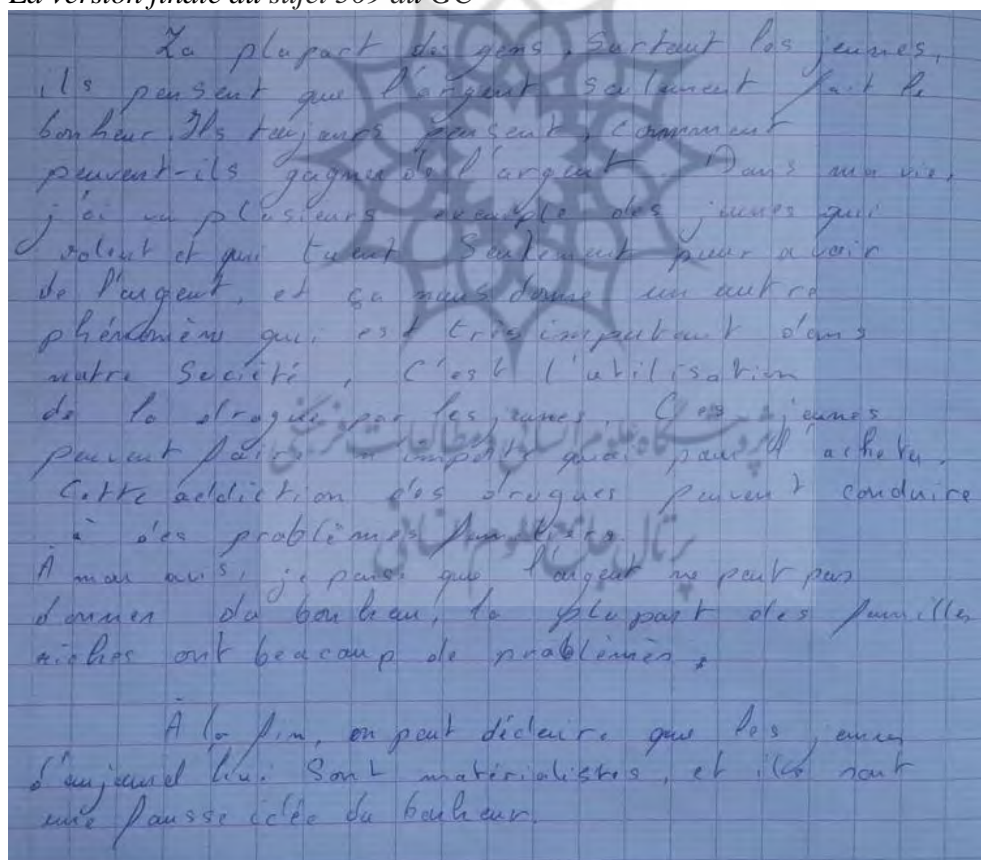 La version finale du sujet 309 du GC
La plupart des gens, surtout les jeunes,
ils pensent que l'argent seulement fait le
bonheur. Ils toujours pensent, comment
peuvent-ils gagner de l'argent. Dans ma vie,
j'ai vu plusieurs exemple des jeunes qui
volent et qui tuent seulement pour avoir
de l'argent, et ça nous donne un autre
phénomène qui est très important dans
notre Société, C'est l'utilisation
de la drogue par les jeunes. Ces jeunes
peuvent faire n'importe quoi pour l'acheter.
Cette addiction des drogues peuvent conduire
à des problèmes familiers.
À mon avis, je pense que l'argent ne peut pas
donner du bonheur, la plupart des familles
riches ont beacoup de problèmes.
À la fin, on peut que les jeunes
d'aujourd'hui sont matérialistes, et ils ont
une fausse idée du bonheur.
پژوهشگاه علوم انسانی و مطالعات فرهنگی
پرتال جامع علوم انسانی